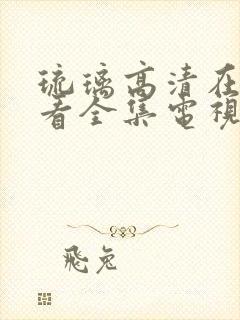 琉璃高清在
看全集電視
飛兔